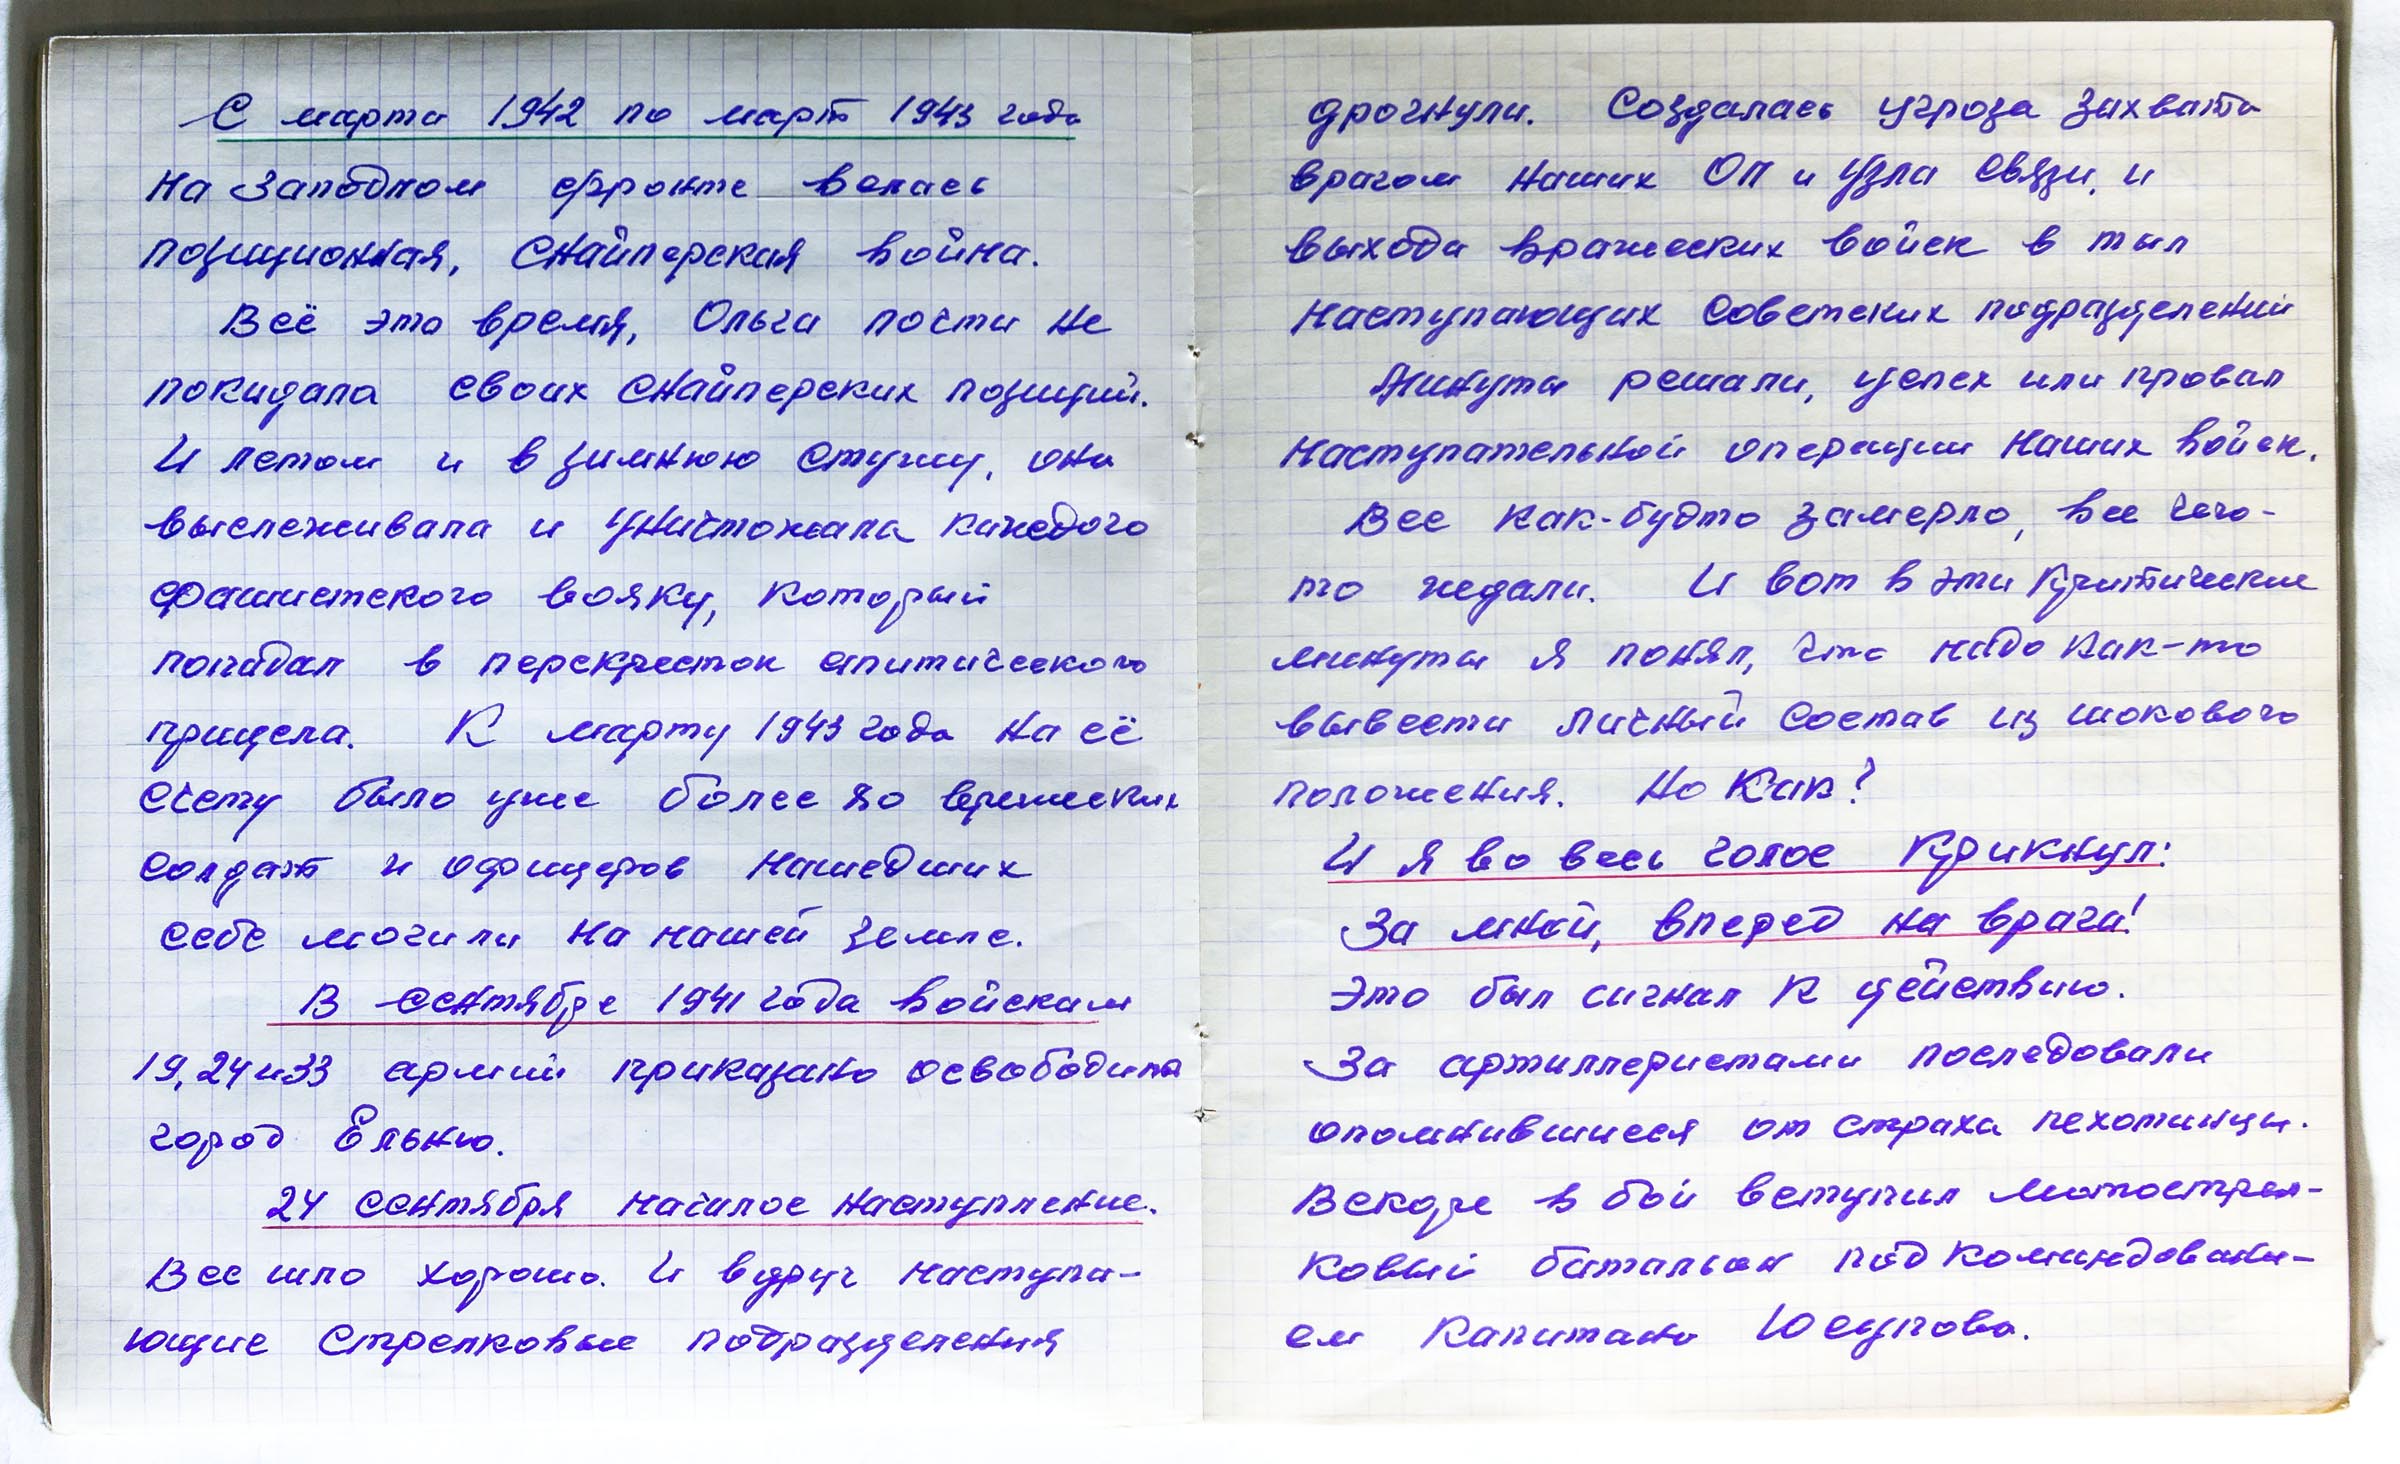 С марта 1942 по март 1943 года
на Западном фронте велась
позиционная, снайперская война.
Всё это время, Ольга почти не
покидала своих снайперских позиций.
И летом и в зимнюю стужу, она
выслеживала и уничтожала каждого
фашистского вояку, который
попадал в перекресток оптического
прицела. К марту 1943 года на её
счету было уже более вражеских
солдат и офицеров нашедших
себе могилы на нашей земле.
В сентябре 1941 года войскам
19, 24 и 33 армий приказано освободить
город Ельню.
24 сентября началось наступление.
Все шло хорошо. И вдруг наступа-
ющие стрелковые подразделения
дрогнули. Создалась угроза захвата
врагом наших ОП и узла связи, и
выхода вражеских войск в тыл
наступающих советских подразделений
Минуты решали, успех или провал
наступательной операции наших войск.
Все как-будто замерло, все чего-
то ждали. И вот в эти критические
минуты я понял, что надо как-то
вывести личный состав из шокового
положения. Но как?
И я во весь голос крикнул:
За мной, вперед на врага!
Это был сигнал к действию.
За артиллеристами последовали
опомнившиеся от страха пехотинцы.
Вскоре в бой вступил мотострел-
ковый батальон под командовани-
ем капитана Юсупова.